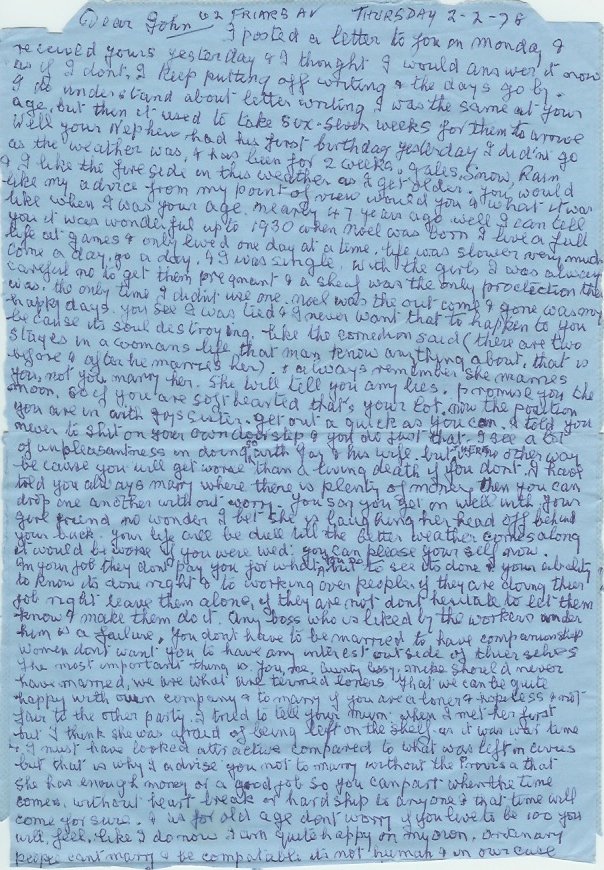 Dear John 62 FRIARS AV THURSDAY 2-2-78
I posted a letter to you on Monday &
received yours yesterday & I thought I would answer it now
as if I dont, I keep putting off writing & the days go by.
I do understand about letter writing I was the same at your
age, but then it used to take six-seven weeks for them to arrive
Well your Nephew had his first birthday yesterday I didn't go
as the weather was, & has been for 2 weeks, gales, snow, Rain
& I like the fireside in this weather as I get older. You would
like my advice from my point of view would you & what it was
like when I was your age. nearly 47 years ago well I can tell
you it was wonderful up to 1930 when Noel was born I live a full
life at games & only lived one day at a time. life was slower very much
come a day, go a day, & I was single, with the girls I was always
careful no to get them pregnant & a sheaf was the only proctection then
was. the only time I didn't use one. noel was the out come & gone was my
happy days. you see I was tied & I never want that to happen to you
because its soul destroying. like the comedian said (there are two
stages in a womans life that man know anything about, that is
before & after he marries her). & always remember she marries
you, not you marry her. she will tell you any lies, promise you the
moon, so if you are soft hearted that's your lot. now the position
you are in with joys sister. get out a quick as you can, I told you
never to shit on your own door step & you do just that. I see a lot
of unpleasantness in doing so with Joy & his wife but there no other way
because you will get worse than a living death if you dont. I have
told you always marry where there is plenty of money, then you can
drop one another without worry. You say you get on well with your
girl friend no wonder I bet she is laughing her head off behind
your back. Your life will be dull till the better weather comes along
it would be worse if you were wed. you can please your self now.
In your job they dont pay you for what you do but to see its done & your ability
to know its done right & to working over people if they are doing thier
job right leave them alone, if they are not dont hesitate to let them
know & make them do it. any boss who is liked by the workers under
him is a failure. You dont have to be married to have companionship
women dont want you to have any interest outside of thier selves
The most important thing is. You, me, aunty Cissy, mike should never
have married, we are what are termed loners that we can be quite
happy with own company & to marry if you are a loner & hopeless & not
fair to the other party. I tried to tell your mum when I met her first
but I think she was afraid of being left on the shelf as it was war time
& I must have looked attractive compared to what was left in civvies
but that is why I advise you not to marry without the Proviso that
she has enough money or a good job so you can part when the time
comes, without heart break or hardship to anyone & that time will
come for sure. & as for old age dont worry if you live to be 100 you
will feel like I do now. I am quite happy on my own. ordanary
people cant marry & be compatable its not human & in our case